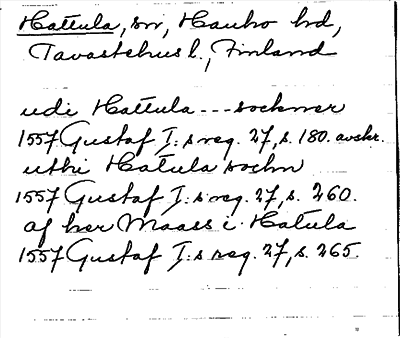 Hattula, sn, Hauho hd,
Tavastehus l., Finland
udi Hattula --- sockner
1557 Gustaf I:s reg. 27, s. 180. avskr.
uthi Hatula sochn
1557 Gustaf I:s reg. 27, s. 260.
af her Maass i Hatula
1557 Gustaf I:s reg. 27, s. 265.